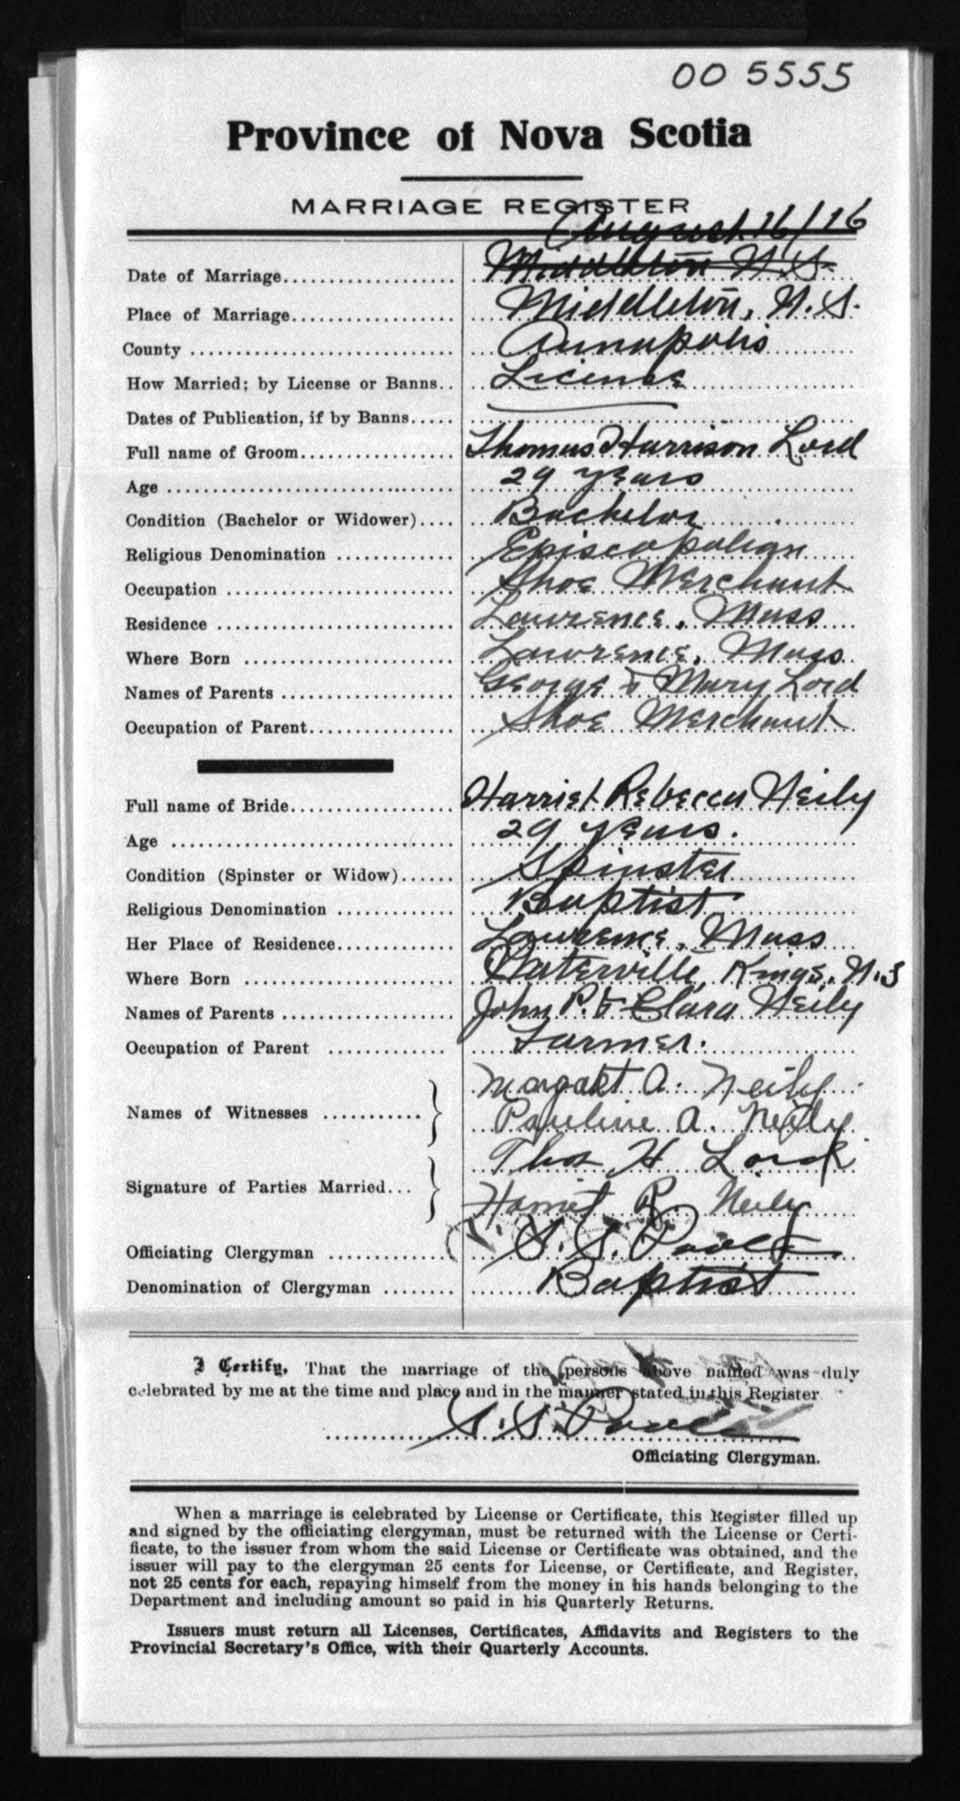 00 5555
Province of Nova Scotia
MARRIAGE REGISTER
August 16/16
Middleton N.S.
Date of Marriage
Place of Marriage Middleton, N.S.
County Annapolis
How Married; by License or Banns.. License
Dates of Publication, if by Banns
Full name of Groom Thomas Harrison Lord
Age 29 years
Condition (Bachelor or Widower) Bachelor
Religious Denomination Episcopalian
Occupation Shoe Merchant
Residence Lawrence, Mass
Where Born Lawrence, Mass
Names of Parents George & Mary Lord
Occupation of Parent Shoe Merchant
Full name of Bride Harriet Rebecca Neily
Age 29 years.
Condition (Spinster or Widow) Spinster
Religious Denomination Baptist
Her Place of Residence Lawrence, Mass
Where Born Waterville, Kings, N.S
Names of Parents John P. & Clara Neily
Occupation of Parent Farmer.
Margaret A. Neily
Names of Witnesses
Pauline A. Neily
Thos H Lord
Signature of Parties Married...
Harriet R. Neily
Officiating Clergyman S. S. Poole
Denomination of Clergyman Baptist
I Certify, That the marriage of the persons above named was duly
celebrated by me at the time and place and in the manner stated in this Register
S. S. Poole
Officiating Clergyman.
When a marriage is celebrated by License or Certificate, this Register filled up
and signed by the officiating clergyman, must be returned with the License or Certi-
ficate, to the issuer from whom the said License or Certificate was obtained, and the
issuer will pay to the clergyman 25 cents for License, or Certificate, and Register,
not 25 cents for each, repaying himself from the money in his hands belonging to the
Department and including amount so paid in his Quarterly Returns.
Issuers must return all Licenses, Certificates, Affidavits and Registers to the
Provincial Secretary's Office, with their Quarterly Accounts.